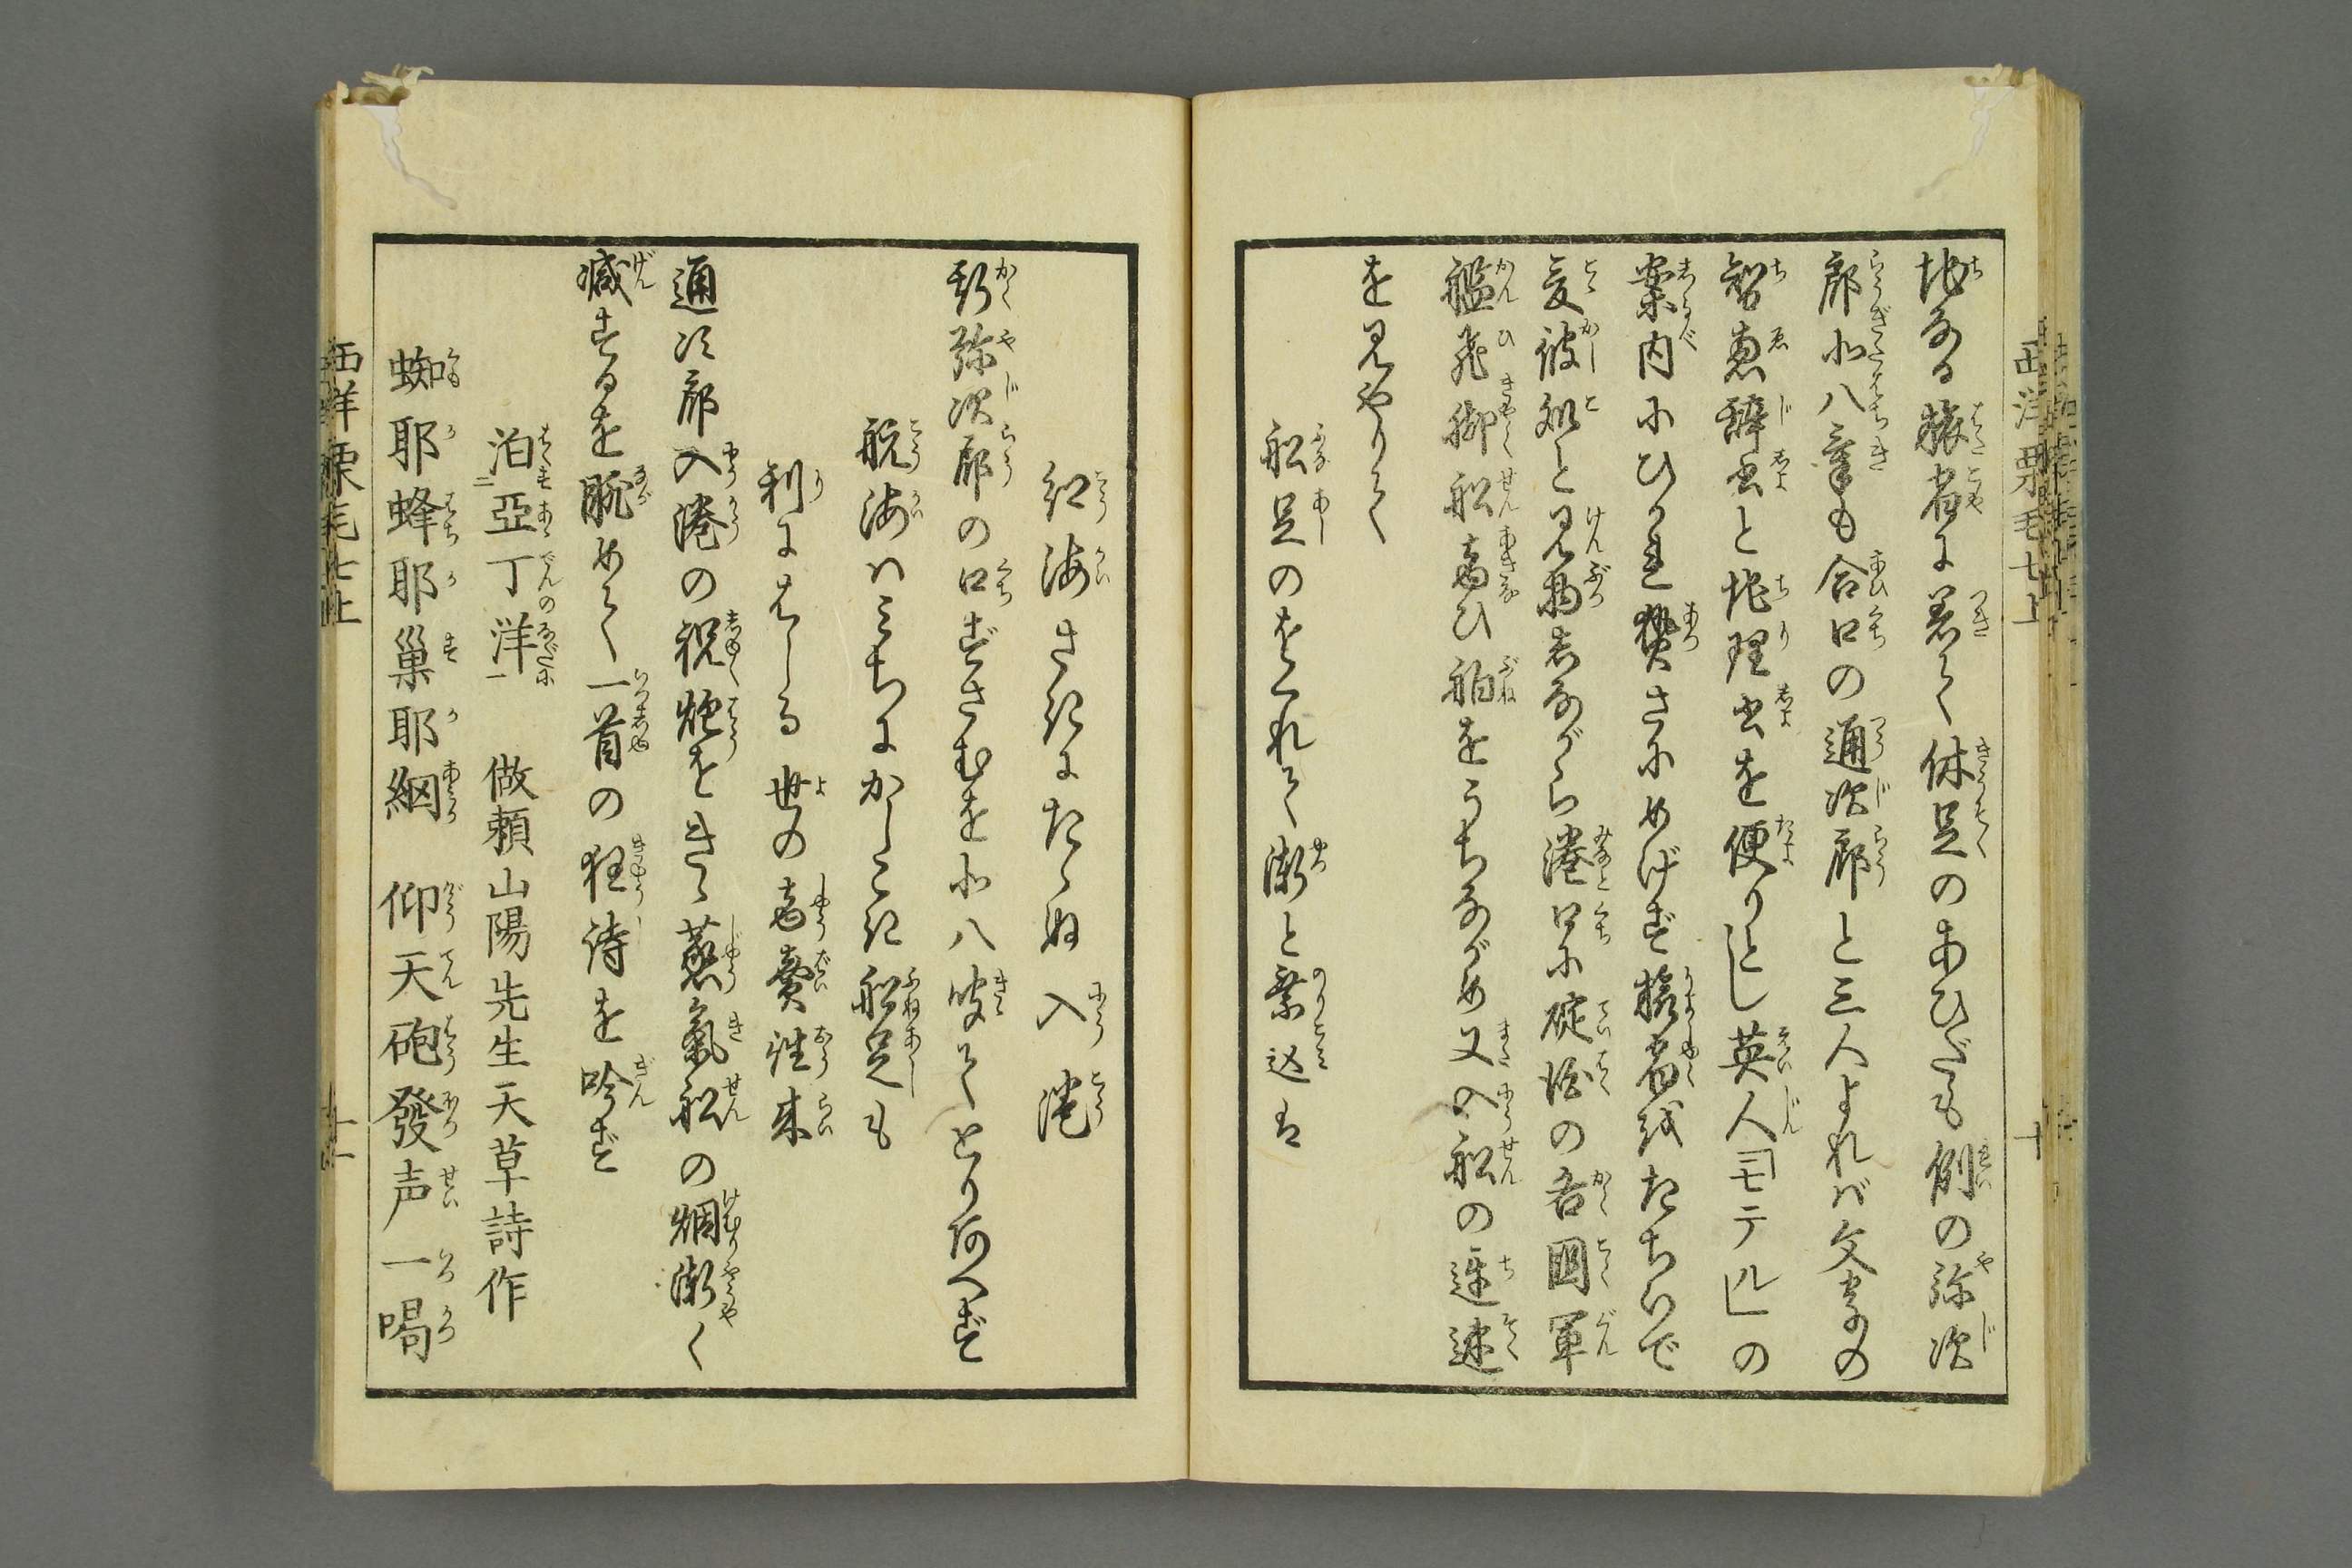 西洋栗毛七上
十
地なる旅省に着て休足のあひだも例の弥次
郎北八輩も合口の通次郎と三人よれバ文字の
智恵辞書と地理書を便りとし英人「モテル」の
案内にひかれ燓さにめげず旅省をたちいで
爰彼処と見物しながら港口に碇泊の各国軍
艦飛脚舩商ひ舶をうちながめ又入舩の遅速
を見やりて
舩足のをくれて漸と乗込は
紅海さきにたゝぬ入港
斯弥次郎の口ずさむを北八咲てとりあへず
航海ハみちにかしこき舩足も
利にはしる世の商賣往来
通次郎入港の祝炮をきゝ蒸氣舩の烟漸く
減ずるを眺めて一首の狂詩を吟ず
泊亞丁洋 倣頼山陽先生天草詩作
蜘耶蜂耶巣耶網 仰天砲發声一喝
西洋栗毛七上
十一